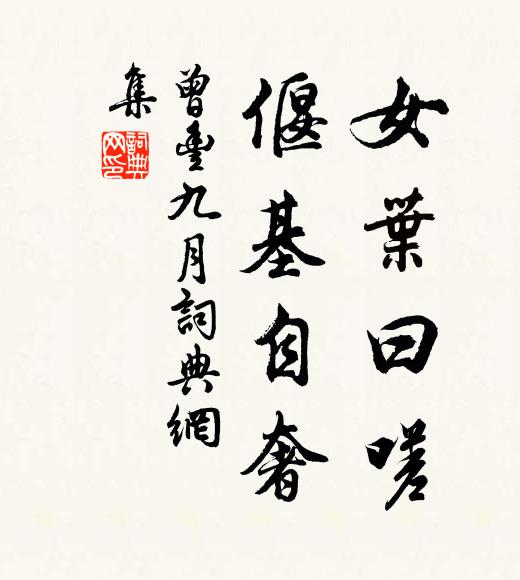 女葉曰嗟
偃基自奢
曾豐九月詞典網
集
詞典網印